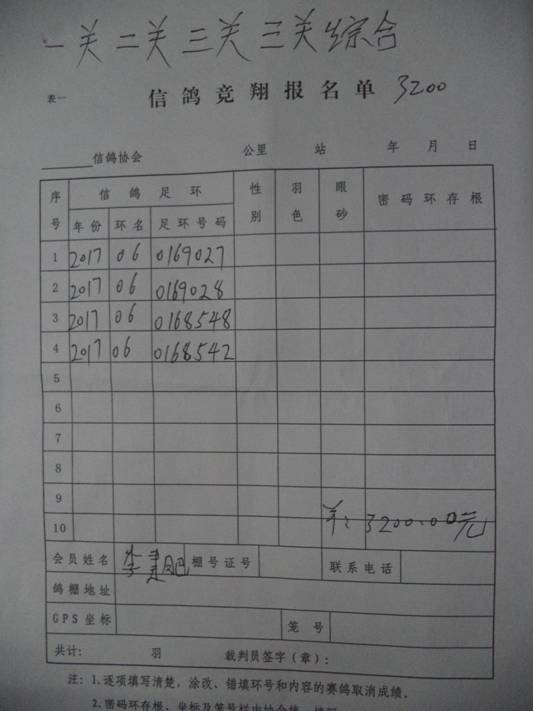 一关 二关 三关 三关综合
表一 信鸽竞翔报名单 3200
信鸽协会 公里 站 年 月 日
序号 信鸽足环 性别 羽色 眼砂 密码环存根
年份 环名 足环号码
1 2017 06 0169027
2 2017 06 0169028
3 2017 06 0168548
4 2017 06 0168542
5
6
7
8
9
10 3200.00元
会员姓名 李 棚号证号 联系电话
鸽棚地址
GPS坐标 笼号
共计: 羽 裁判员签字(章):
注: 1.逐项填写清楚,涂改、错填环号和内容的赛鸽取消成绩。
2.密码环存根、坐标及笼号栏由协会统一填写